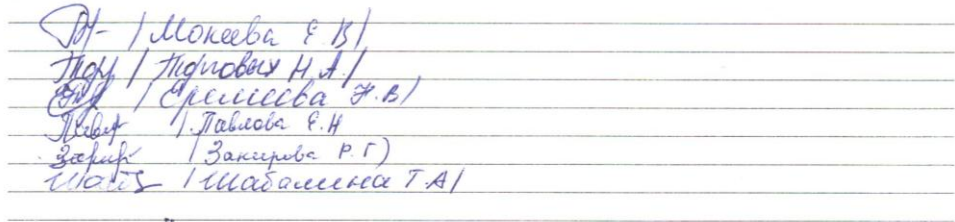 / Мокеева Е.В/
/ Торговых Н.А./
/ Еремеева Н.В/
/ Павлова Е.Н
/ Закирова Р.Г)
/ Шабалина Т.А/